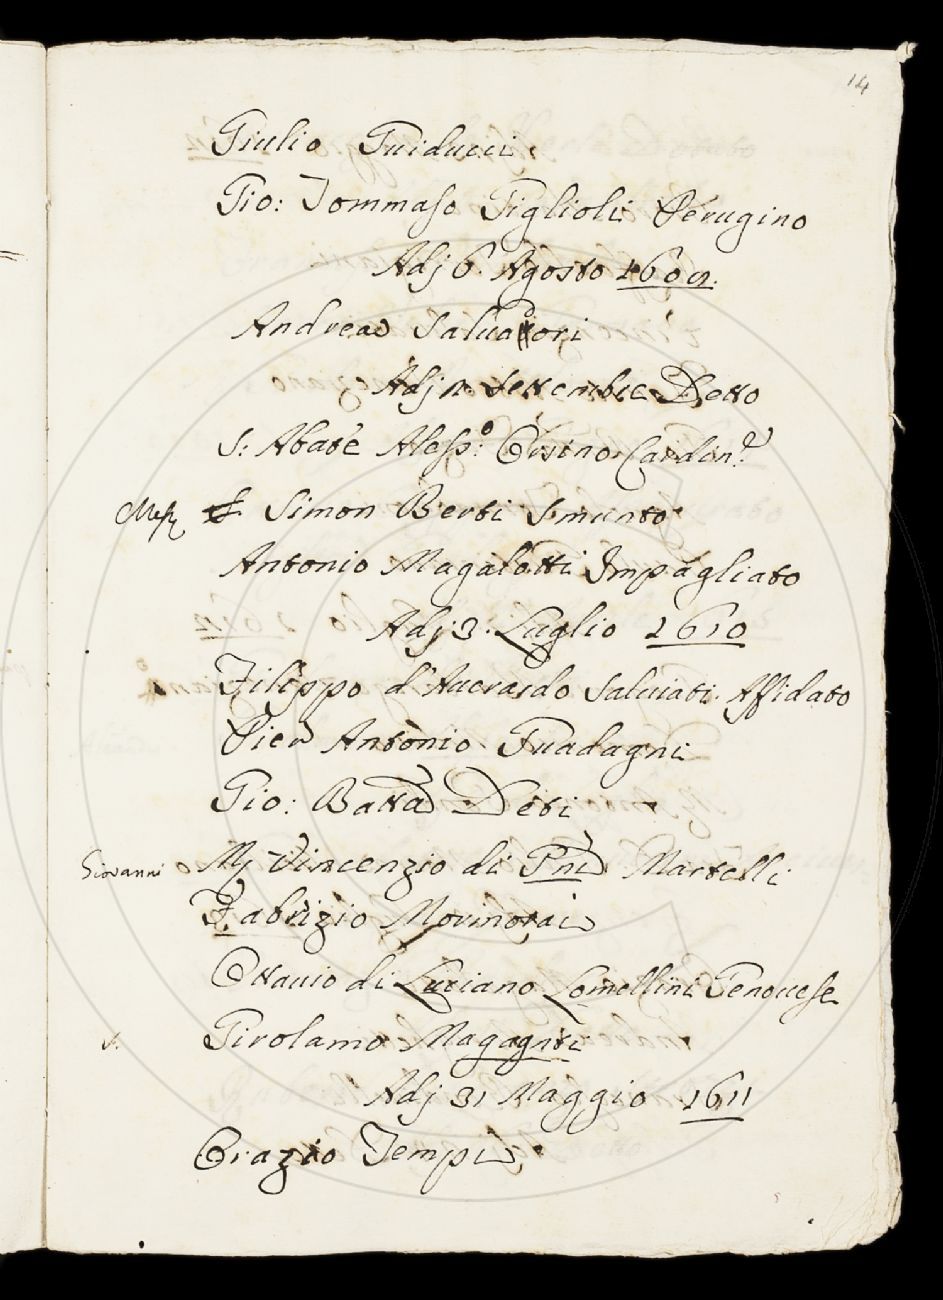 14
Giulio Guiducci
Gio: Tommaso Figlioli Perugino
Adj 6. Agosto 1609.
Andrea Salvadori
Adj 11 Settembre Detto
S: Abate Aless:o Orsino Cardin.e
Mess. S. Simon Berti Smunto
Antonio Magalotti Impagliato
Adj 3. Luglio 1610
Filippo d'Averardo Salviati Affidato
Pier Antonio Guadagni
Gio: Batta Deti
Giovanni Mj Vincenzio di Pni Martelli
Fabrizio Mormorai
Ottavio di Luciano Lomellini Genovese
s. Girolamo Magagnti
Adj 31 Maggio 1611
Orazio Tempi